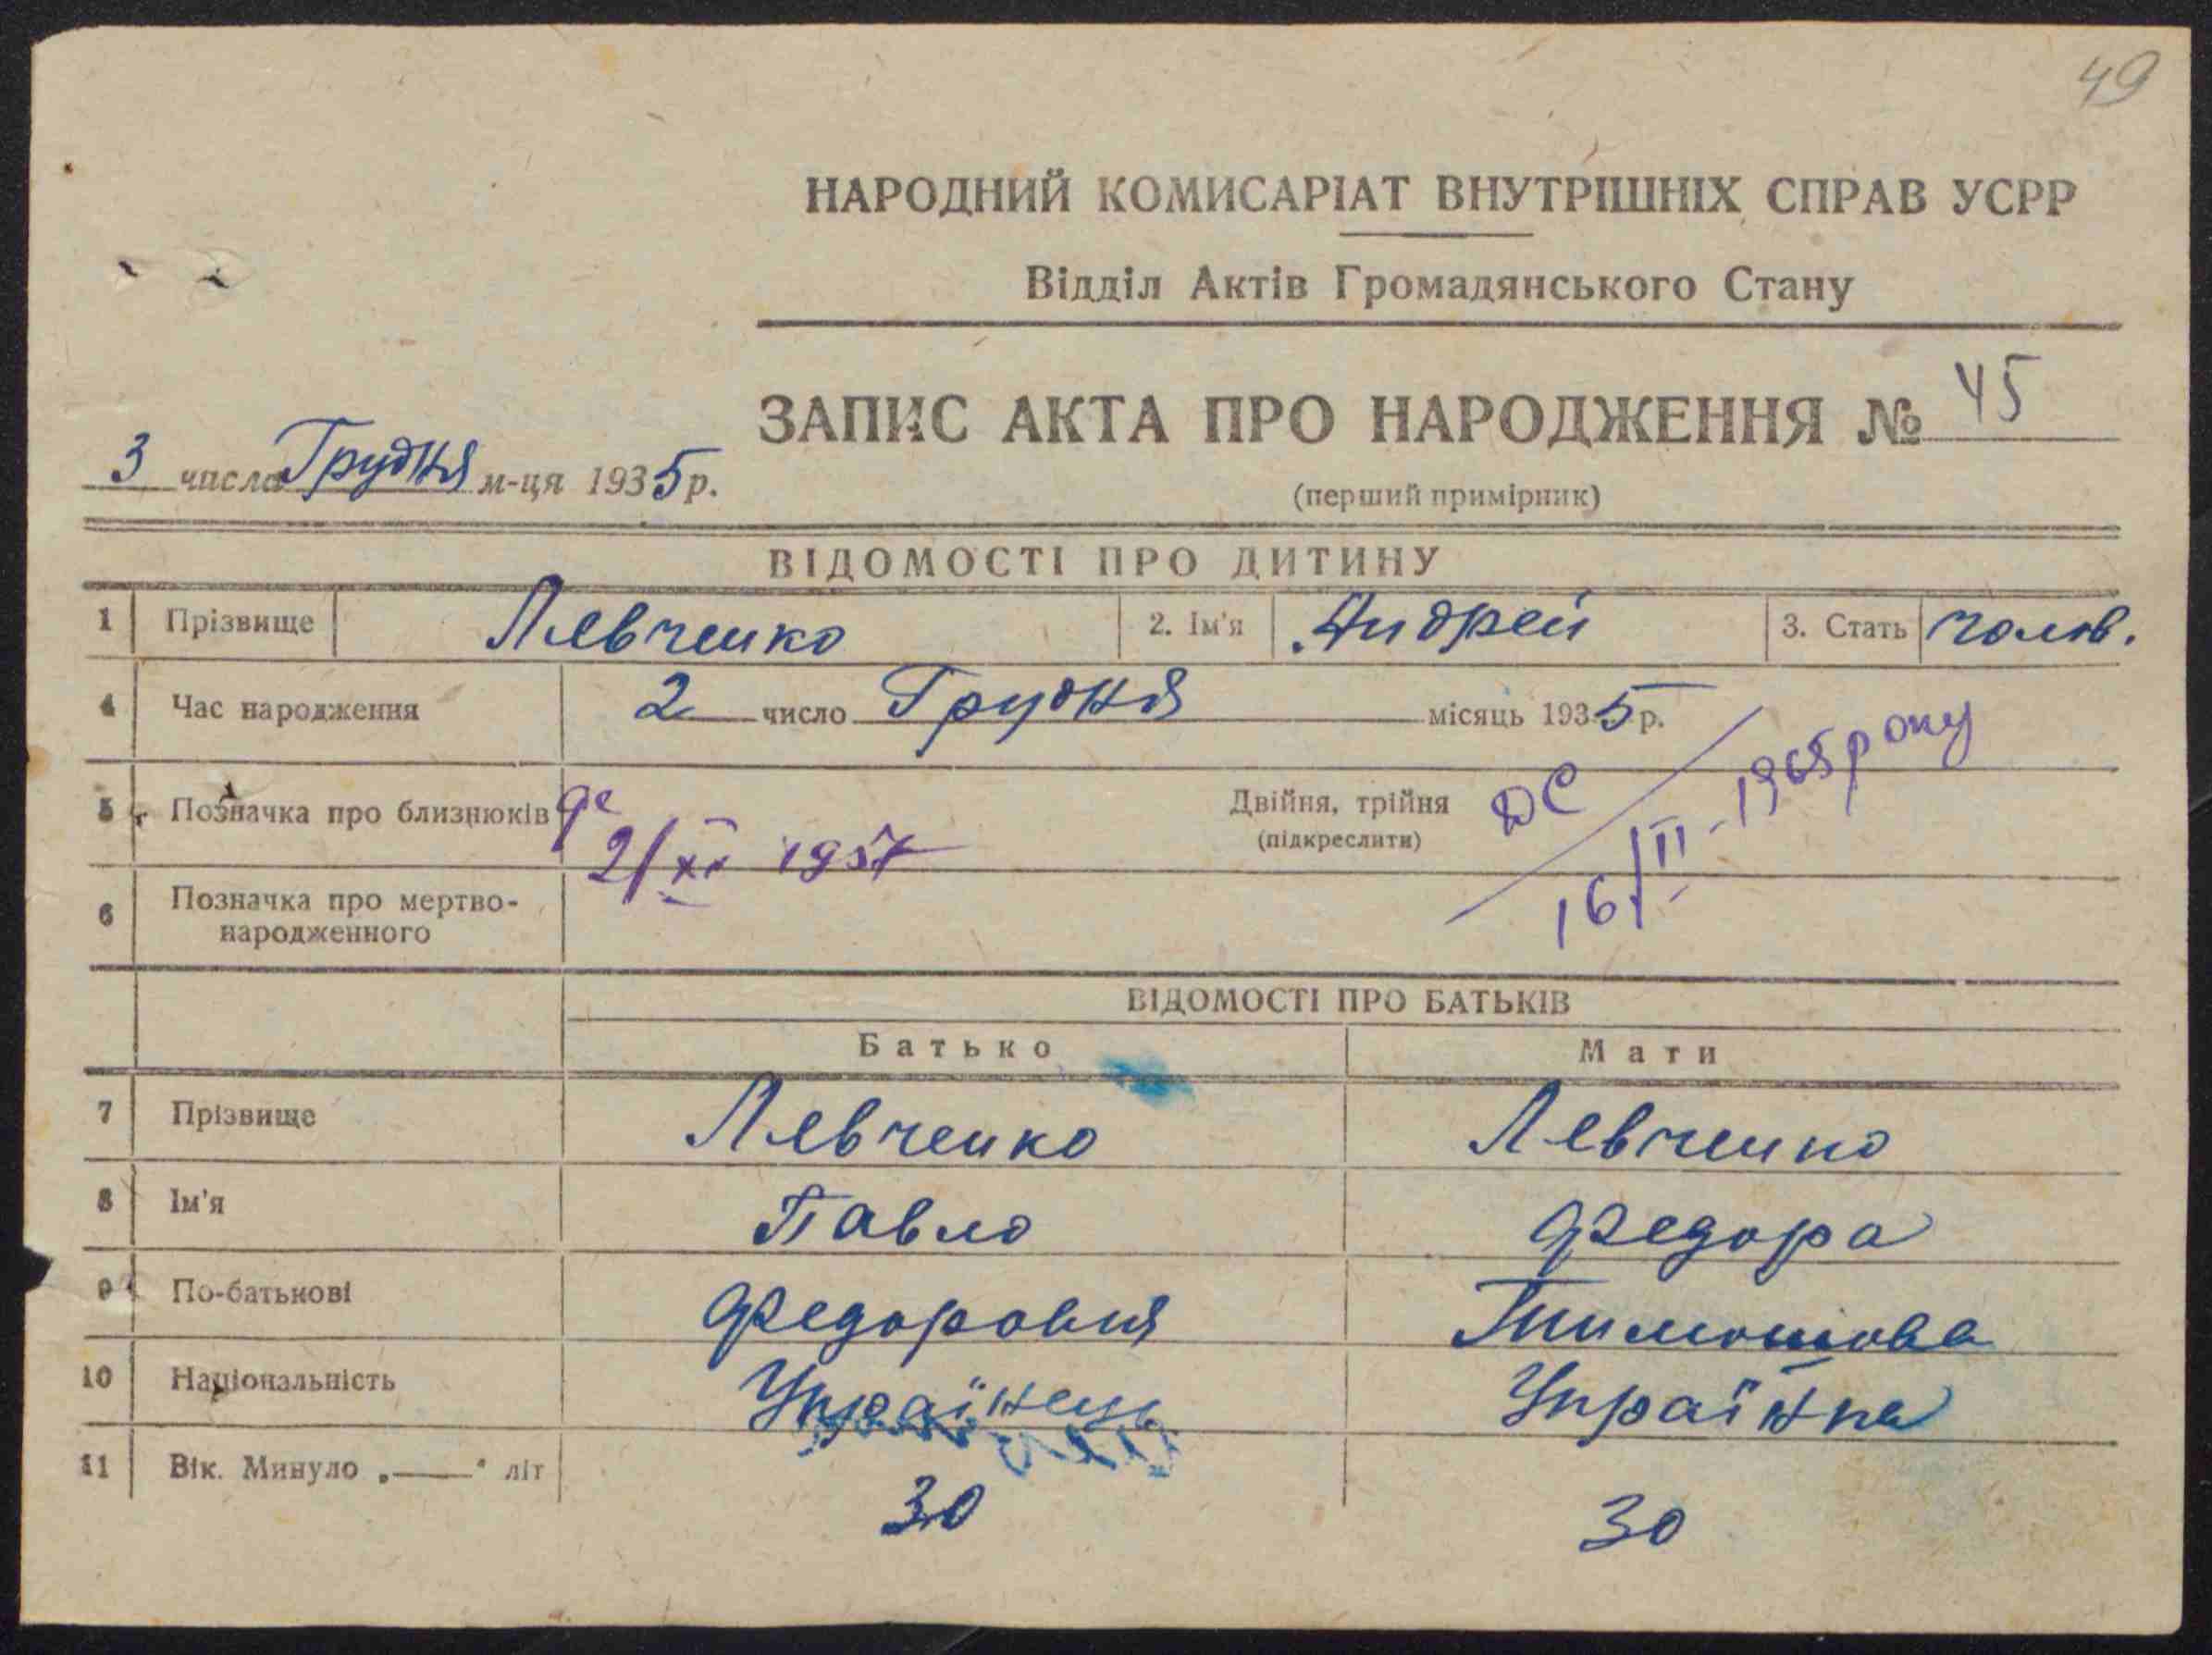 49
НАРОДНИЙ КОМИСАРІАТ ВНУТРІШНІХ СПРАВ УСРР
Відділ Актів Громадянського Стану
ЗАПИС АКТА ПРО НАРОДЖЕННЯ № 45
3 числа Грудня м-ця 1935 р.
(перший примірник)
ВІДОМОСТІ ПРО ДИТИНУ
1 Прізвище Левченко 2. Ім'я Андрей 3. Стать чолов.
4 Час народження 2 число Грудня місяць 1935 р.
5 Позначка про близнюків Двійня, трійня
(підкреслити)
ДС
16/II-1965 року
2/XI 1957
6 Позначка про мертво-
народженного
ВІДОМОСТІ ПРО БАТЬКІВ
Батько Мати
7 Прізвище Левченко Левченко
8 Ім'я Павло Федора
9 По-батькові Федоровия Тимошова
10 Національність Українець Українка
11 Вік. Минуло „—" літ 30 30